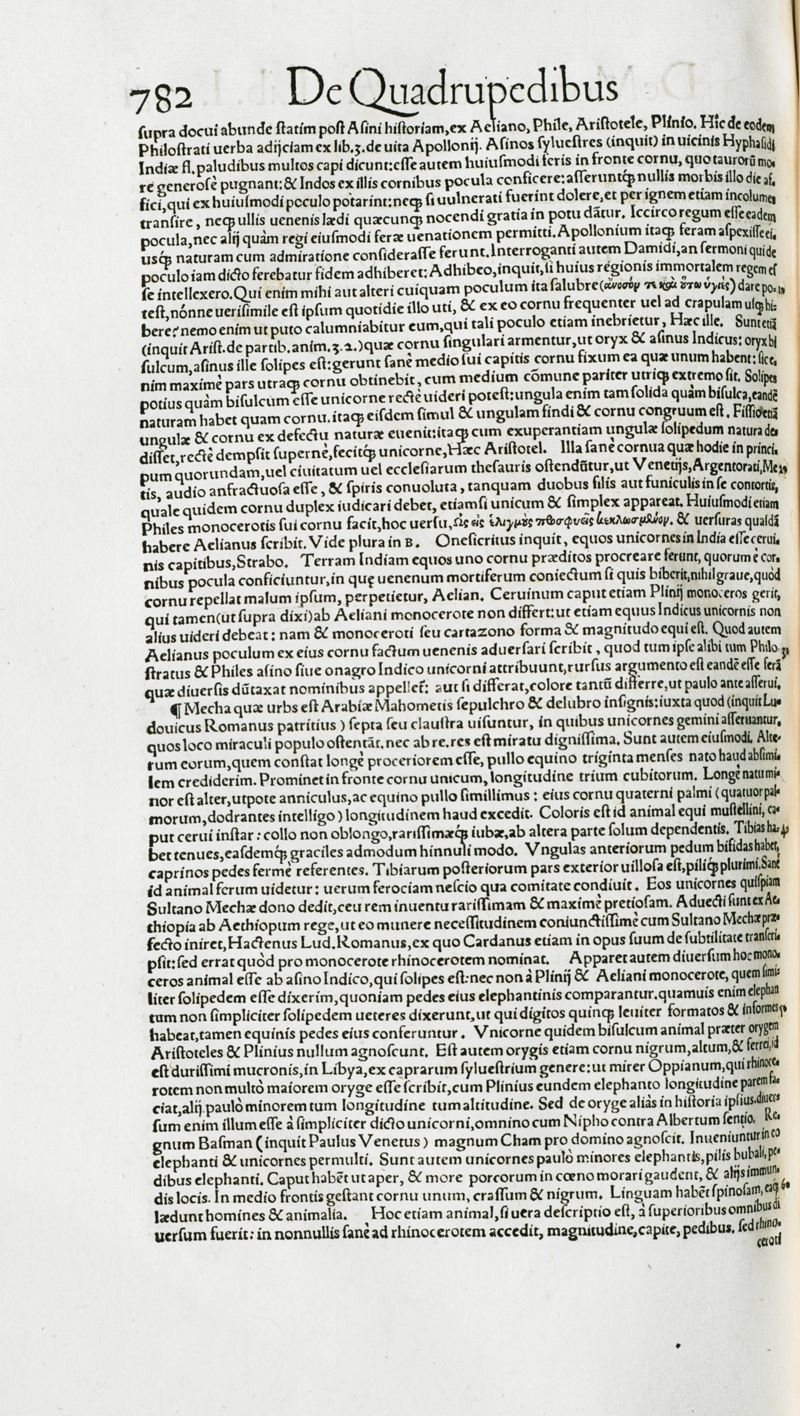 782 De Quadrupedibus
ſupra docui abunde ſtatim poſt Aſini hiſtoriam,ex Aeliano, Phile, Ariſtotele, Plinio. Hic de eodem
Philoſtrati uerba adijciam ex lib.3.de uita Apollonij. Aſinos ſylueſtres (inquit) in uicinis Hyphaſidi
Indiæ fl.paludibus multos capi dicunt:eſſe autem huiuſmodi feris in fronte cornu, quo taurorũ mo-
re generoſè pugnant:& Indos ex illis cornibus pocula conficere:aſſeruntq́ nullis morbis illo die af-
fici,qui ex huiuſmodi poculo potarint:neq́ ſi uulnerati fuerint dolere,et per ignem etiam incolumes
tranſire, neq́ ullis uenenis lædi quæcunq́ nocendi gratia in potu datur. Iccirco regum eſſe eadem
pocula,nec alij quàm regi eiuſmodi feræ uenationem permitti. Apollonium itaq́ feram aſpexiſſe ei-
usq́ naturam cum admiratione conſideraſſe ferunt. Interroganti autem Damidi,an ſermoni qui de
poculo iam dicto ferebatur fidem adhiberet: Adhibeo,inquit,ſi huius regionis immortalem regem eſ
ſe intellexero.Qui enim mihi aut alteri cuiquam poculum ita ſalubre() dare po-
teſt,nónne ueriſimile eſt ipſum quotidie illo uti, & ex eo cornu frequenter uel ad crapulam uſq́ bi-
bere? nemo enim ut puto calumniabitur eum,qui tali poculo etiam inebrietur, Hæc ille. Sunt etiã
(inquit Ariſt.de partib.anim.3.2.)quæ cornu ſingulari armentur,ut oryx & aſinus Indicus: oryx bi
ſulcum,aſinus ille ſolipes eſt:gerunt ſanè medio ſui capitis cornu fixum ea quæ unum habent: ſic e-
nim maximè pars utraq́ cornu obtinebit, cum medium cōmune pariter utriq́ extremo ſit. Solipes
potius quàm biſulcum eſſe unicorne rectè uideri poteſt:ungula enim tam ſolida quàm biſulca,eandē
naturam habet quam cornu.itaq́ eiſdem ſimul & ungulam findi & cornu congruum eſt. Fiſſio etiā
ungulæ & cornu ex defectu naturæ euenit:itaq́ cum exuperantiam ungulæ ſolipedum natura de-
diſſet,rectè dempſit ſupernè,fecitq́ unicorne,Hæc Ariſtotel. Illa ſanè cornua quæ hodie in princi-
pum quorundam,uel ciuitatum uel eccleſiarum theſauris oſtendūtur,ut Venetijs,Argentorati,Me-
tis, audio anfractuoſa eſſe, & ſpiris conuoluta, tanquam duobus filis aut funiculis in ſe contortis,
quale quidem cornu duplex iudicari debet, etiamſi unicum & ſimplex appareat. Huiuſmodi etiam
Philes monocerotis ſui cornu facit,hoc uerſu, & uerſuras quaſdã
habere Aelianus ſcribit. Vide plura in B. Oneſicritus inquit, equos unicornes in India eſſe cerui-
nis capitibus,Strabo. Terram Indiam equos uno cornu præditos procreare ferunt, quorum è cor-
nibus pocula conficiuntur,in quę uenenum mortiferum coniectum ſi quis biberit,nihil graue,quòd
cornu repellat malum ipſum, perpetietur, Aelian. Ceruinum caput etiam Plinij monoceros gerit,
qui tamen(ut ſupra dixi)ab Aeliani monocerote non differt:ut etiam equus Indicus unicornis non
alius uideri debeat: nam & monoceroti ſeu cartazono forma & magnitudo equi eſt. Quod autem
Aelianus poculum ex eius cornu factum uenenis aduerſari ſcribit, quod tum ipſe alibi tum Philo
ſtratus & Philes aſino ſiue onagro Indico unicorni attribuunt,rurſus argumento eſt eandē eſſe ferã
quæ diuerſis dūtaxat nominibus appelletʳ: aut ſi differat,colore tantū differre,ut paulo ante aſſerui.
¶ Mecha quæ urbs eſt Arabiæ Mahometis ſepulchro & delubro inſignis:iuxta quod (inquit Lu-
douicus Romanus patritius) ſepta ſeu clauſtra uiſuntur, in quibus unicornes gemini aſſeruantur,
quos loco miraculi populo oſtentāt.nec ab re.res eſt miratu digniſſima. Sunt autem eiuſmodi. Alte-
rum eorum,quem conſtat longè proceriorem eſſe, pullo equino triginta menſes nato haud abſimi-
lem crediderim. Prominet in fronte cornu unicum,longitudine trium cubitorum. Longè natu mi-
nor eſt alter,utpote anniculus,ac equino pullo ſimillimus: eius cornu quaterni palmi (quatuor pal-
morum,dodrantes intelligo) longitudinem haud excedit. Coloris eſt id animal equi muſtellini, ca-
put cerui inſtar: collo non oblongo,rariſſimæq́ iubæ,ab altera parte ſolum dependentis. Tibias ha-
bet tenues,eaſdemq́ graciles admodum hinnuli modo. Vngulas anteriorum pedum bifidas habet,
caprinos pedes fermè referentes. Tibiarum poſteriorum pars exterior uilloſa eſt,piliq́ plurimi.Sanè
id animal ferum uidetur: uerum ferociam neſcio qua comitate condiuit. Eos unicornes quiſpiam
Sultano Mechæ dono dedit,ceu rem inuentu rariſſimam & maximè pretioſam. Aduecti ſunt ex Ae-
thiopia ab Aethiopum rege,ut eo munere neceſſitudinem coniunctiſſimè cum Sultano Mechæ præ-
fecto iniret,Hactenus Lud.Romanus,ex quo Cardanus etiam in opus ſuum de ſubtilitate tranſcri-
pſit:ſed errat quòd pro monocerote rhinocerotem nominat. Apparet autem diuerſum hoc mono-
ceros animal eſſe ab aſino Indico,qui ſolipes eſt:nec non à Plinij & Aeliani monocerote, quem ſimi-
liter ſolipedem eſſe dixerim,quoniam pedes eius elephantinis comparantur.quamuis enim elephan
tum non ſimpliciter ſolipedem ueteres dixerunt,ut qui digitos quinq́ leuiter formatos & informes
habeat,tamen equinis pedes eius conferuntur. Vnicorne quidem biſulcum animal præter orygem
Ariſtoteles & Plinius nullum agnoſcunt. Eſt autem orygis etiam cornu nigrum,altum,& ferrei,id
eſt duriſſimi mucronis,in Libya,ex caprarum ſylueſtrium genere:ut mirer Oppianum,qui rhinoce-
rotem non multò maiorem oryge eſſe ſcribit,cum Plinius eundem elephanto longitudine parem fa-
ciat,alij paulò minorem tum longitudine tum altitudine. Sed de oryge aliàs in hiſtoria ipſius.diuer
ſum enim illum eſſe à ſimpliciter dicto unicorni,omnino cum Nipho contra Albertum ſentio. Re-
gnum Baſman (inquit Paulus Venetus) magnum Cham pro domino agnoſcit. Inueniuntur in eo
elephanti & unicornes permulti. Sunt autem unicornes paulò minores elephantis,pilis bubali, pe-
dibus elephanti. Caput habēt ut aper, & more porcorum in cœno morari gaudent, & alijs immun-
dis locis. In medio frontis geſtant cornu unum, craſſum & nigrum. Linguam habēt ſpinoſam, eaq́
lædunt homines & animalia. Hoc etiam animal,ſi uera deſcriptio eſt, à ſuperioribus omnibus di
uerſum fuerit: in nonnullis ſanè ad rhinocerotem accedit, magnitudine,capite, pedibus. ſed rhino-
ceroti